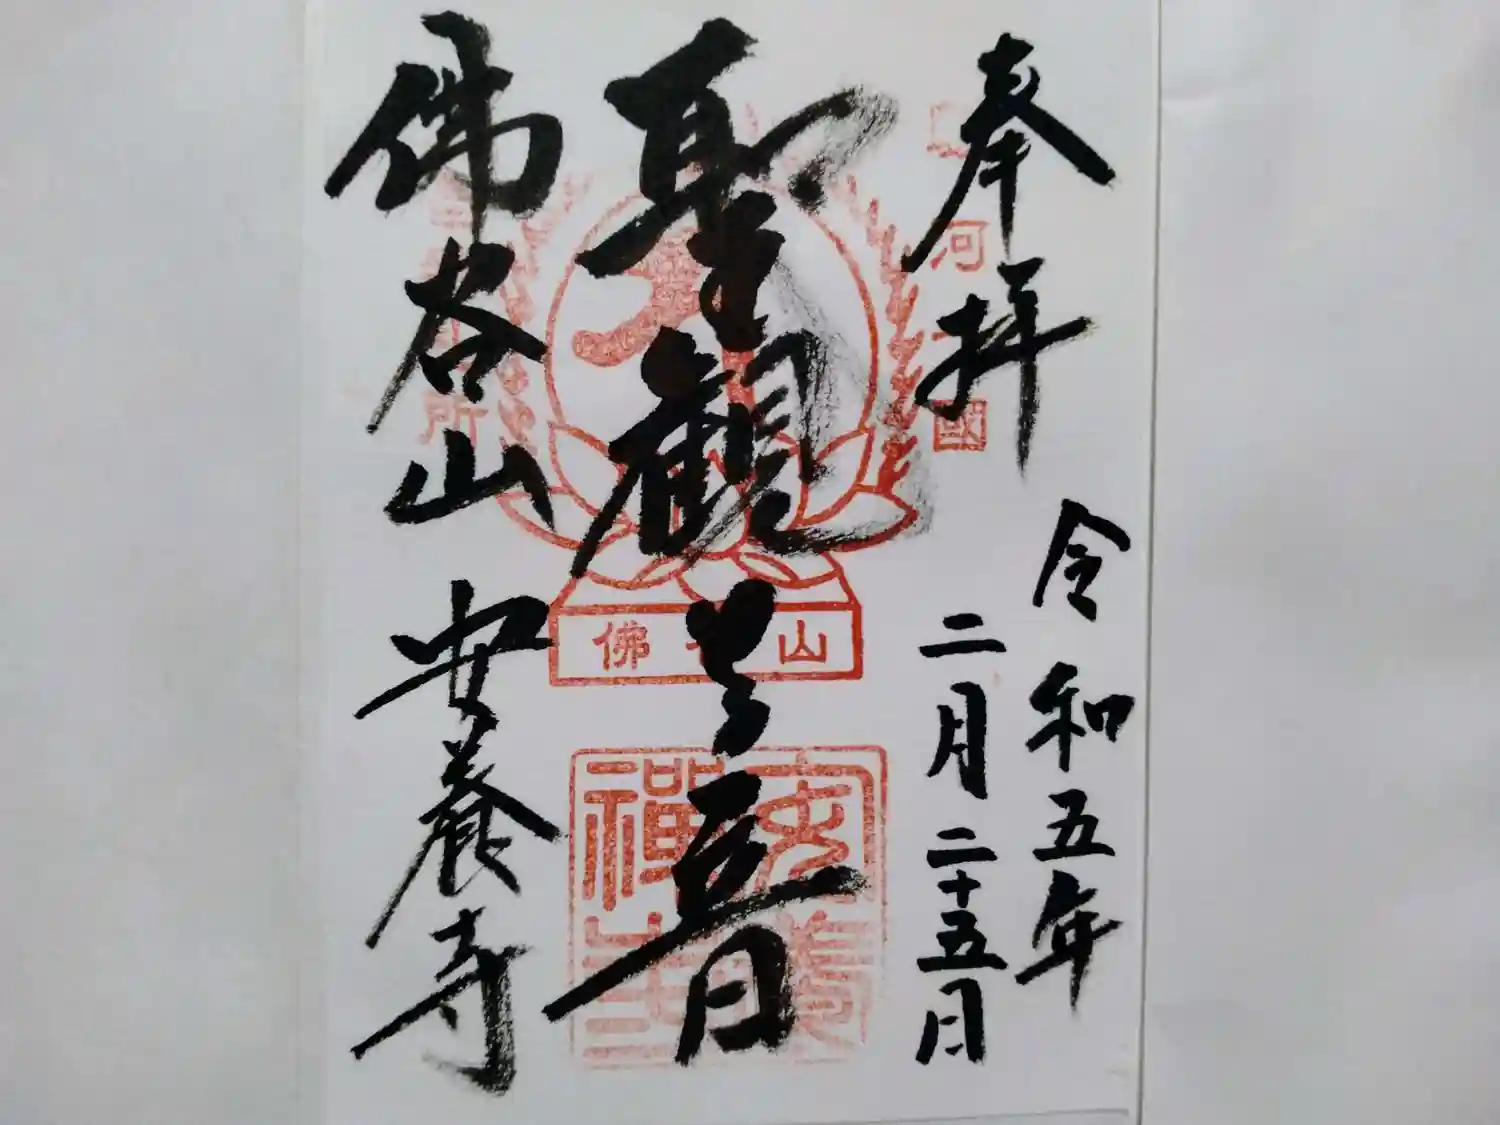 奉拝
令和五年
二月二十五日
聖観世音
佛谷山 安養寺
河 國
佛 山
安養禪寺
所